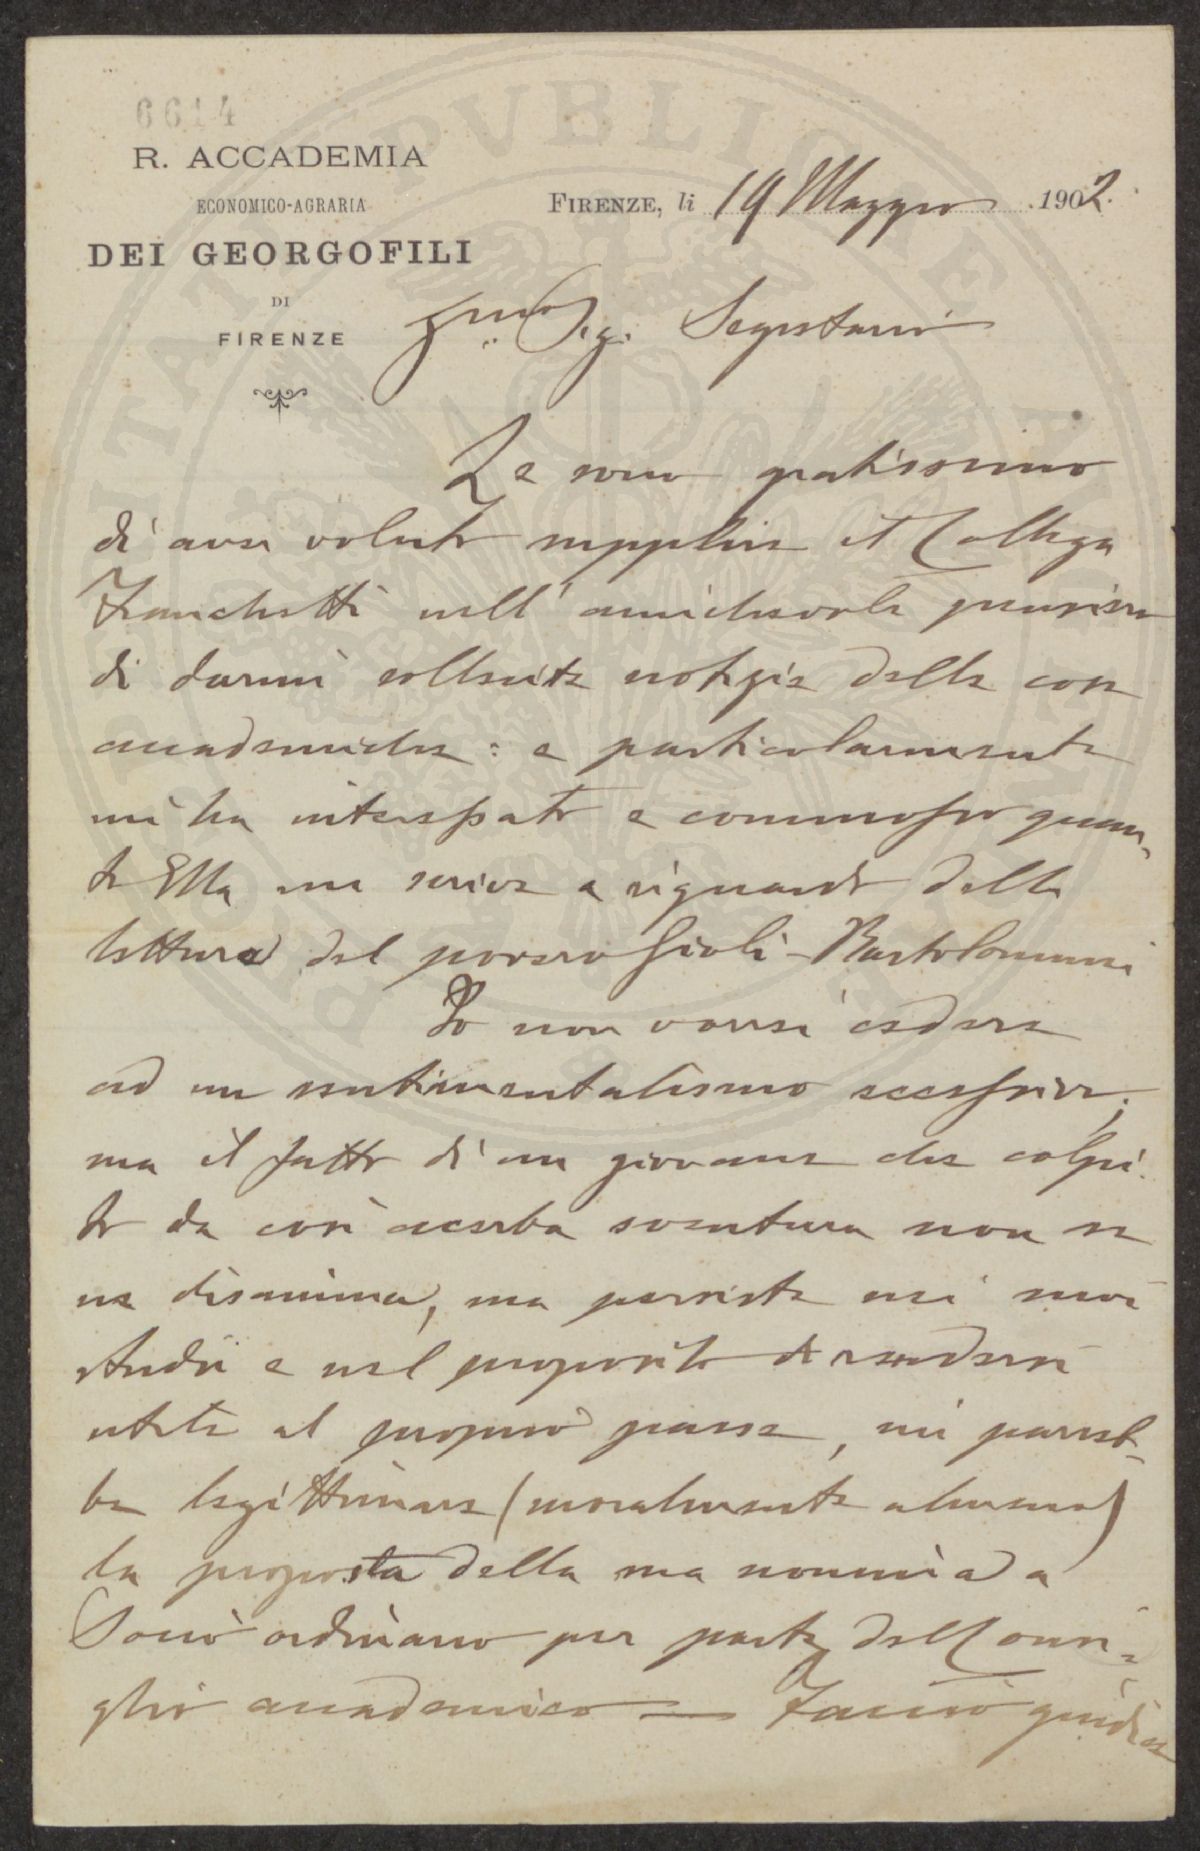 6614
R. ACCADEMIA
ECONOMICO-AGRARIA
DEI GEORGOFILI
DI
FIRENZE
FIRENZE, li 19 Maggio 1902.
Sig. Segretario
Le sono gratissimo
di aver voluto supplire il Collega
Franchetti nell'amichevole pensiero
di darmi sollecite notizie delle cose
accademiche: e particolarmente
mi ha interessato e commosso quan-
to Ella me scrive a riguardo della
lettura del povero Gioli-Bartolommei
Io non vorrei cedere
ad un sentimentalismo eccessivo;
ma il fatto di un giovane che colpi-
to da così acerba sventura non se
ne disanima, ma persiste nei suoi
studi e nel proposito di rendersi
utile al proprio paese, mi pareb-
be legittimare (moralmente almeno)
la proposta della sua nomina a
Socio ordinario per parte del Consi-
glio accademico — Faccio giudice
PROSPERITATI PUBLICAE AUGENDAE